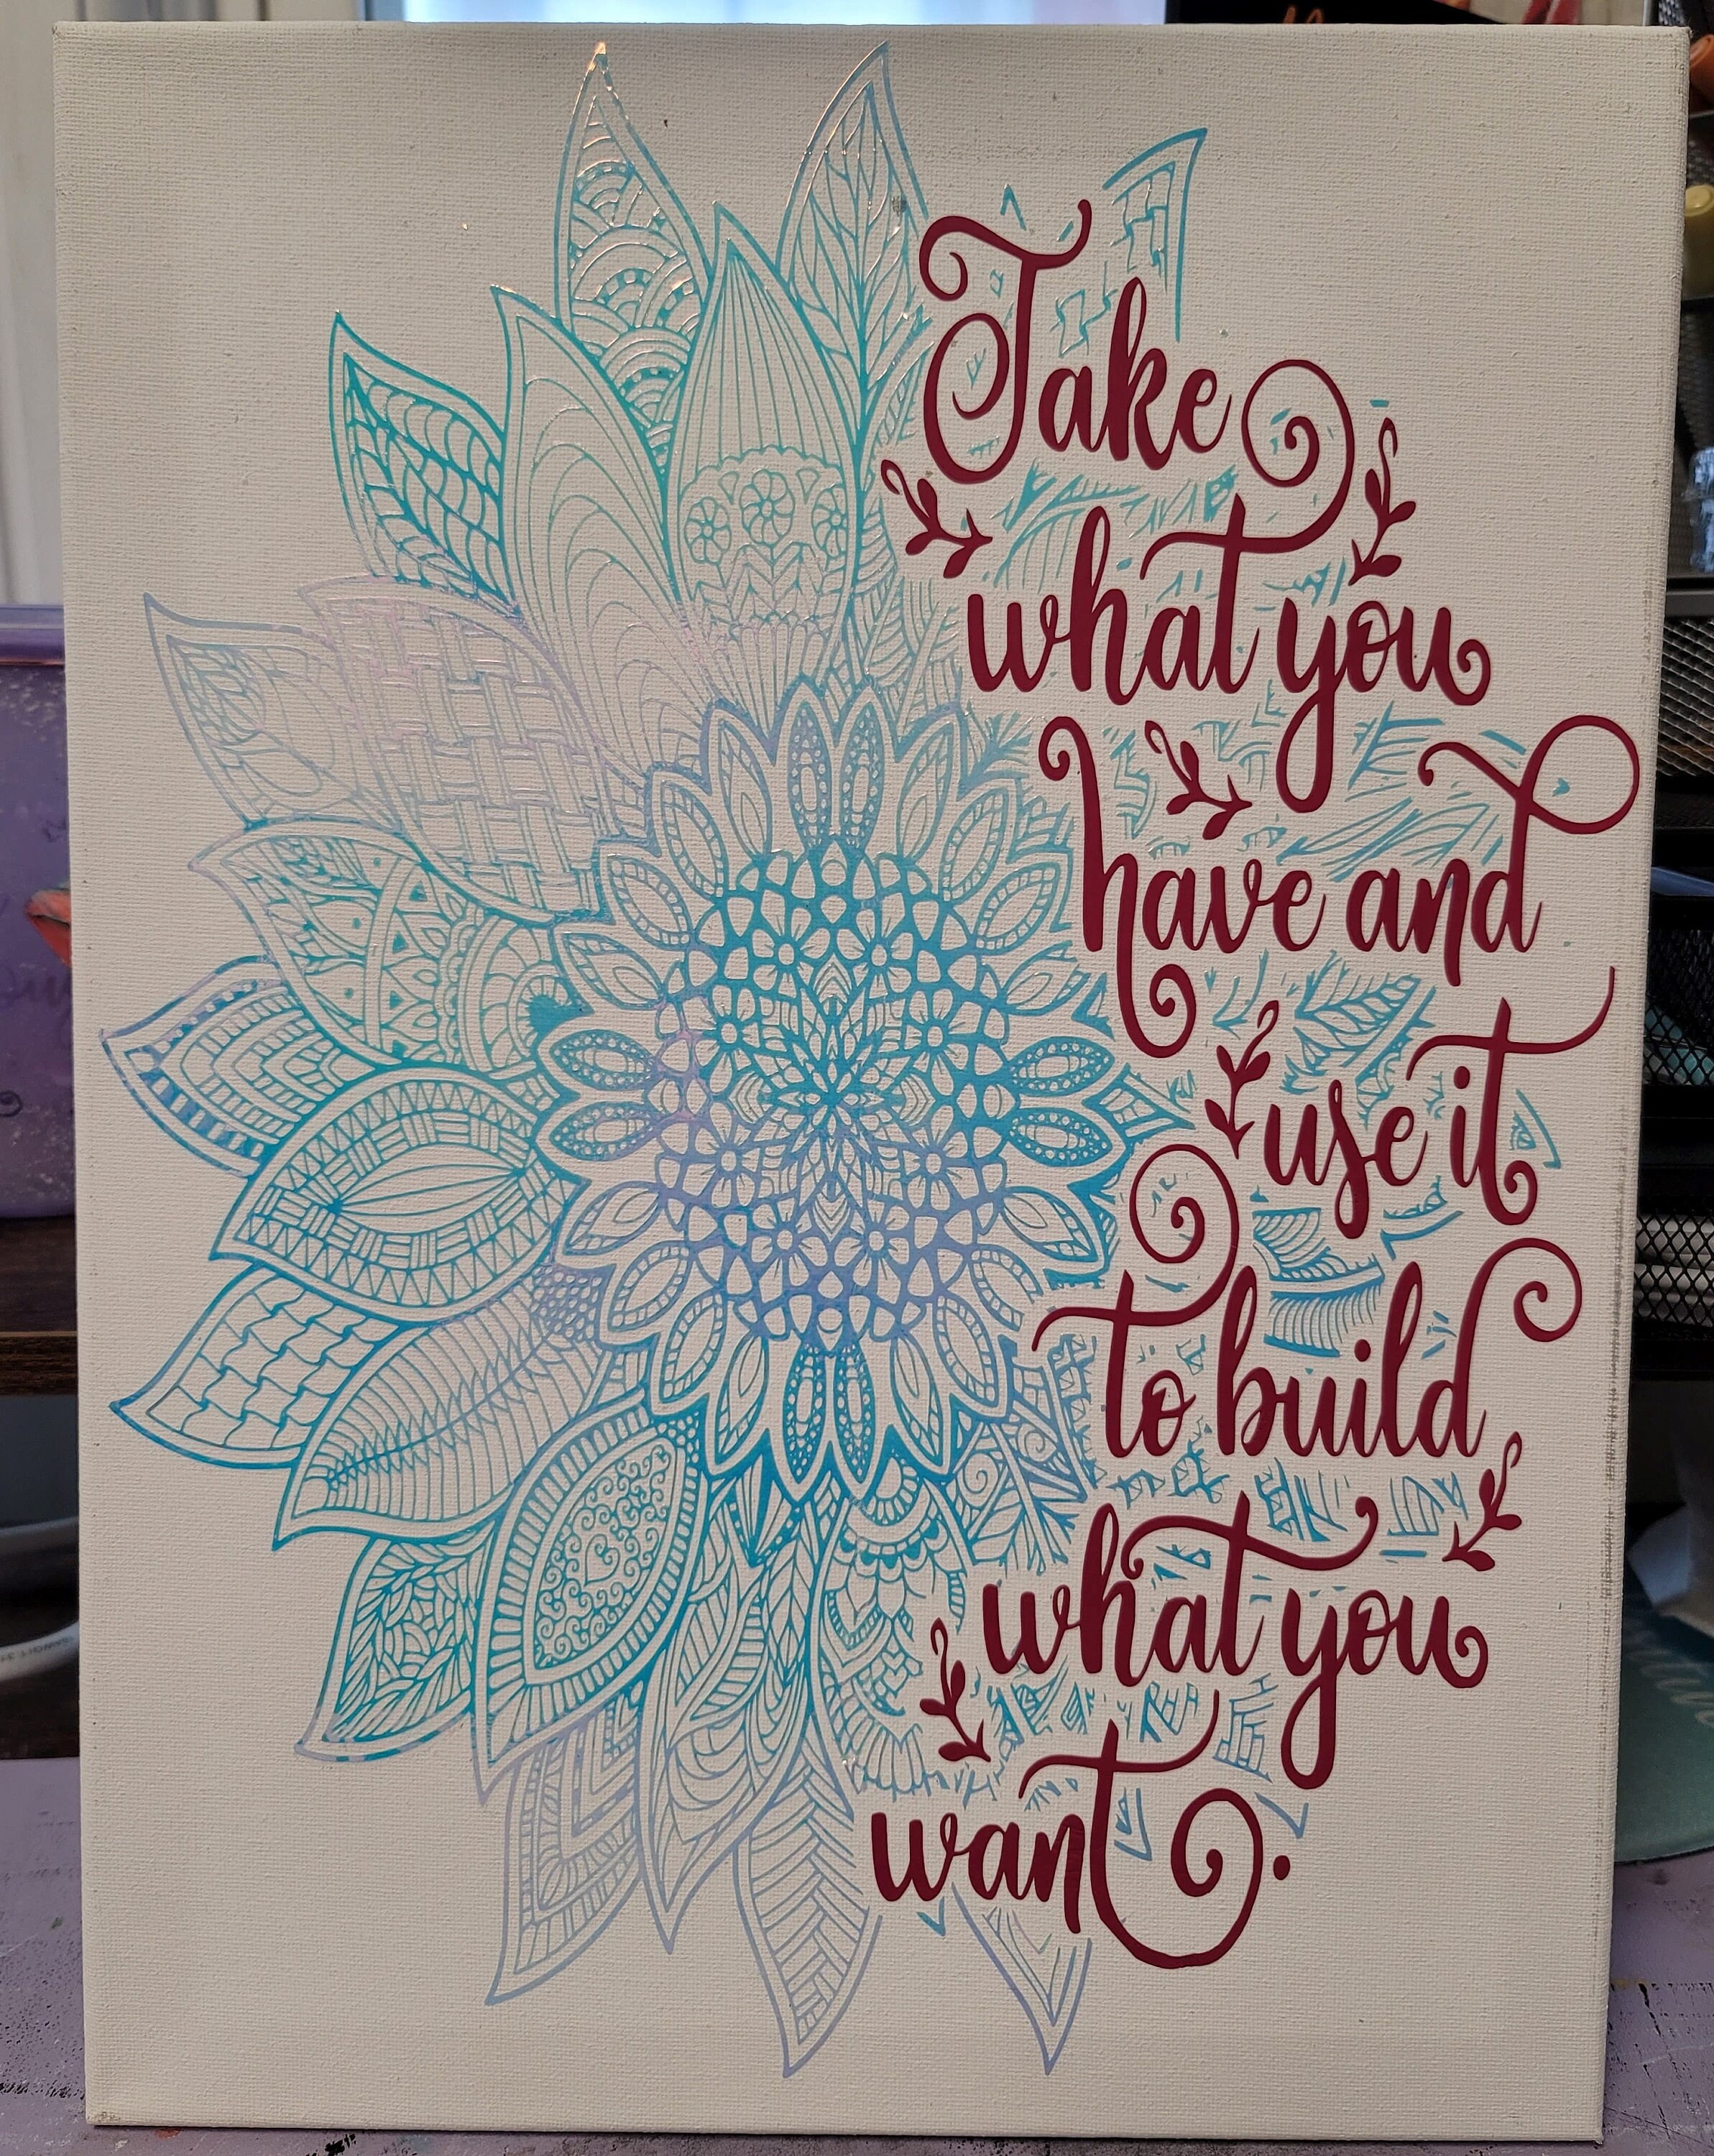 Take
what you
have and
use it
to build
what you
want.